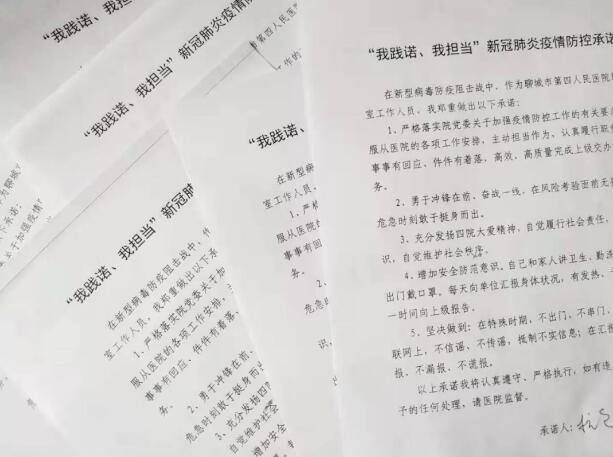 “我践诺、我担当”新冠肺炎疫情防控承诺
在新型病毒防疫阻击战中，作为聊城市第四人民医院
室工作人员，我郑重做出以下承诺：
1、严格落实院党委关于加强疫情防控工作的有关要
服从医院的各项工作安排，主动担当作为、认真履行职
事事有回应、件件有着落，高效、高质量完成上级交办
务。
2、勇于冲锋在前、奋战一线，在风险考验面前无
危急时刻敢于挺身而出。
3、充分发扬四院大爱精神，自觉履行社会责任，
识，自觉维护社会秩序。
4、增加安全防范意识。自己和家人讲卫生、勤洗
出门戴口罩。每天向单位汇报身体状况，有发热、
一时间向上级报告。
5、坚决做到：在特殊时期，不出门、不串门、
联网上，不信谣、不传谣，抵制不实信息；在汇报
报、不漏报、不谎报。
以上承诺我将认真遵守、严格执行，如有违
子的任何处理，请医院监督。
承诺人：
“我践诺、我担当”
“我践诺、我担当”新冠肺炎疫情
“我践诺、我
在新型病毒防
室工作人员，我
1、严格落实
服从医院的各
事事有回应、
务。
2、勇于
危急时刻敢
3、充
识，自觉
4、
出门戴
“我践诺、我担当”新冠
在新型病毒防疫阻击战中，
室工作人员，我郑重做出以下承
1、严格落实院党委关于加
服从医院的各项工作安排，主
事事有回应、件件有着落，
务。
2、勇于冲锋在前、
危急时刻敢于挺身而
3、充分发扬四
自觉维护社会
增加安全